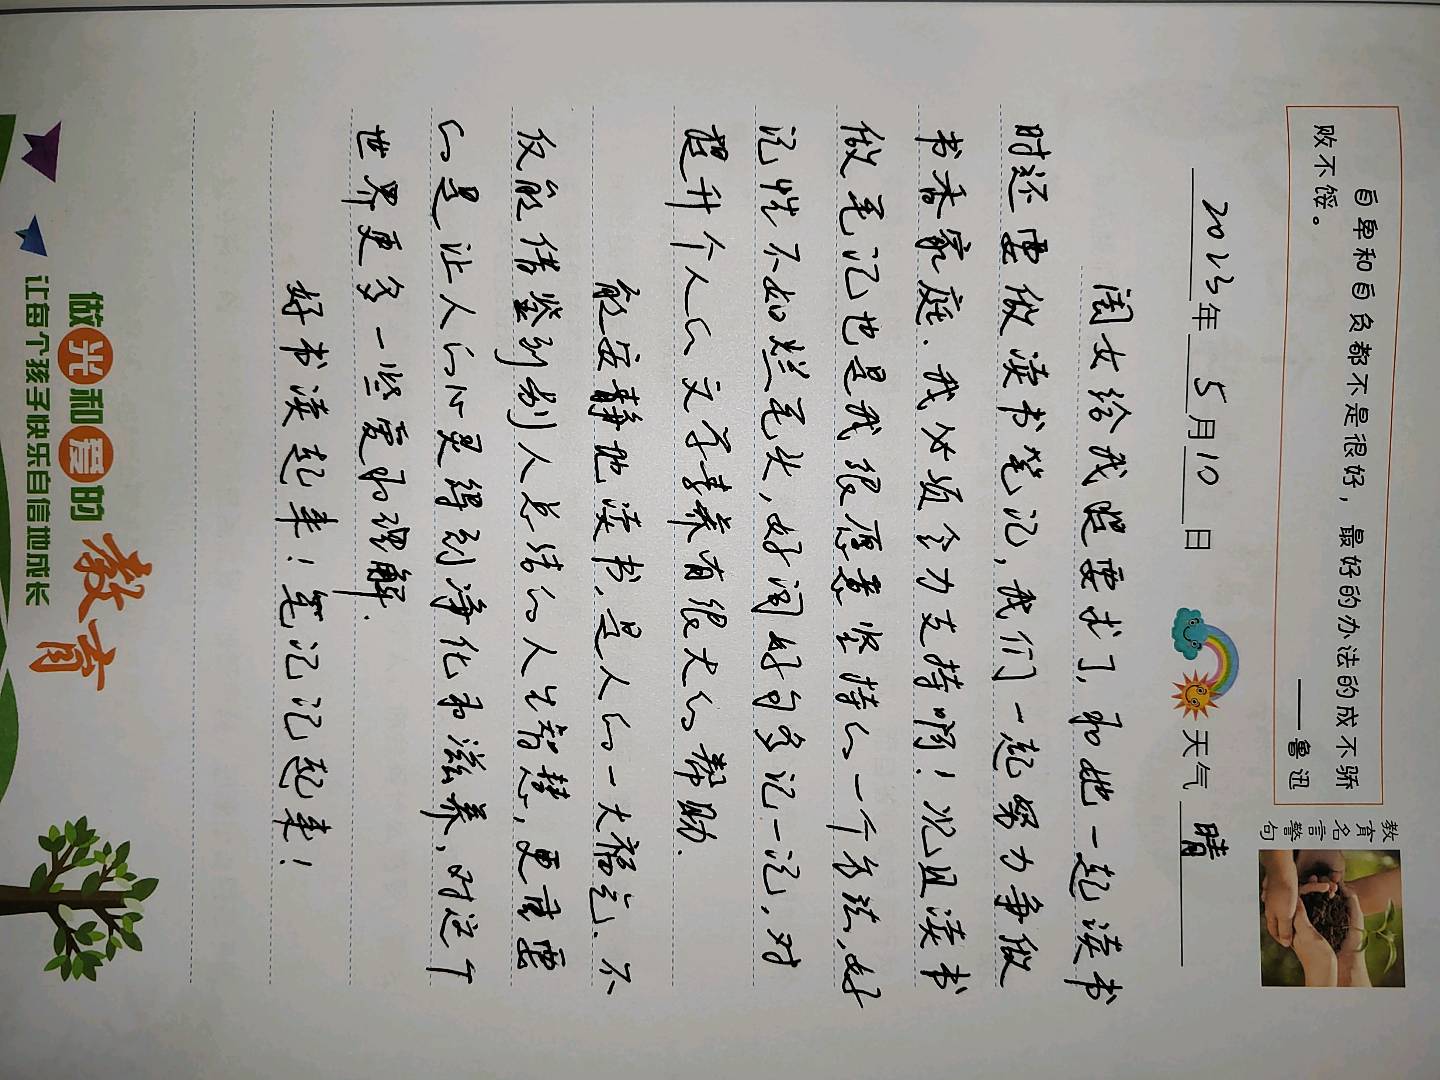 教育名言警句
自卑和自负都不是很好，最好的办法的成不骄
败不馁。
——鲁迅
2023年5月10日 天气 晴
闺女给我提要求了，和她一起读书
时还要做读书笔记，我们一起努力争做
书香家庭．我必须全力支持啊！况且读书
做笔记也是我很愿意坚持的一个方法，好
记性不如烂笔头，好词好句多记一记，对
提升个人的文学素养有很大的帮助．
能安静地读书，是人的一大福气．不
仅能借鉴到别人总结的人生智慧，更重要
的是让人的心灵得到净化和滋养，对这个
世界更多一些爱和理解．
好书读起来！笔记记起来！
做光和爱的教育
让每个孩子快乐自信地成长